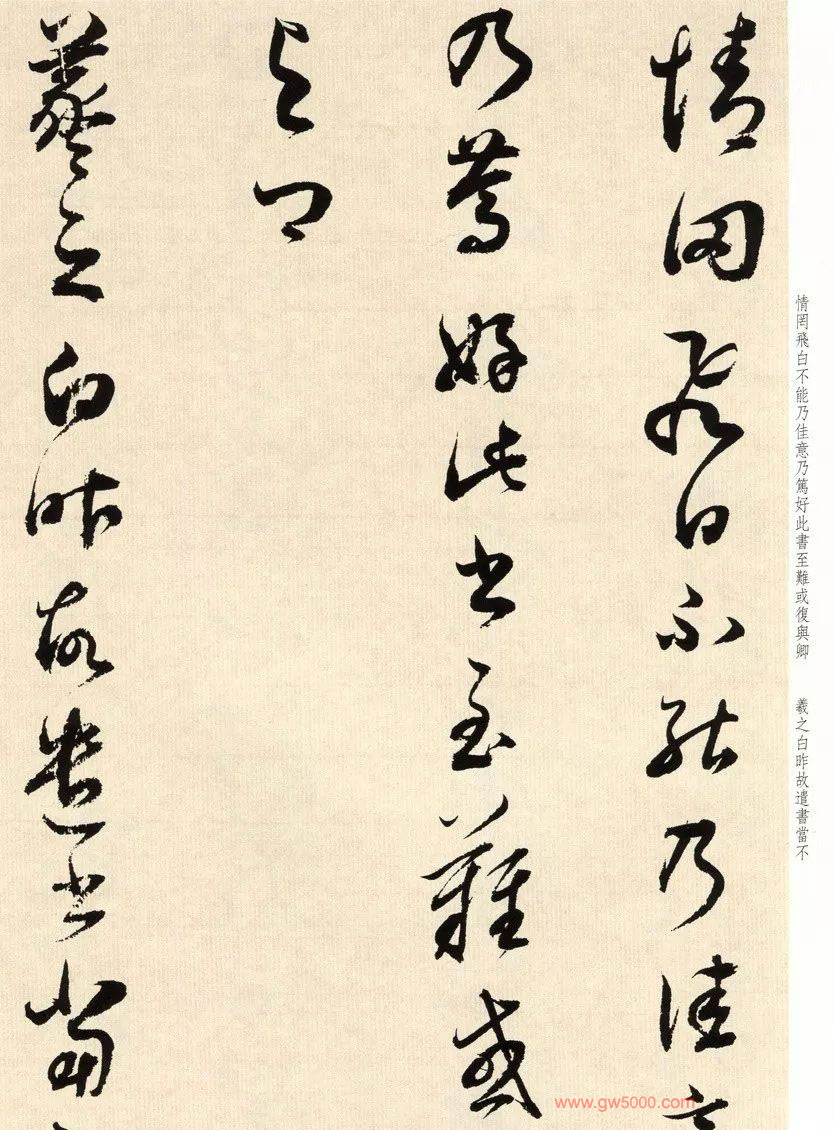 情罔飛白不能乃佳意乃篤好此書至難或復與卿　羲之白昨故遣書當不
情罔飛白不能乃佳
乃篤好此書至難或
與卿
羲之白昨故遣書當
www.gw5000.com